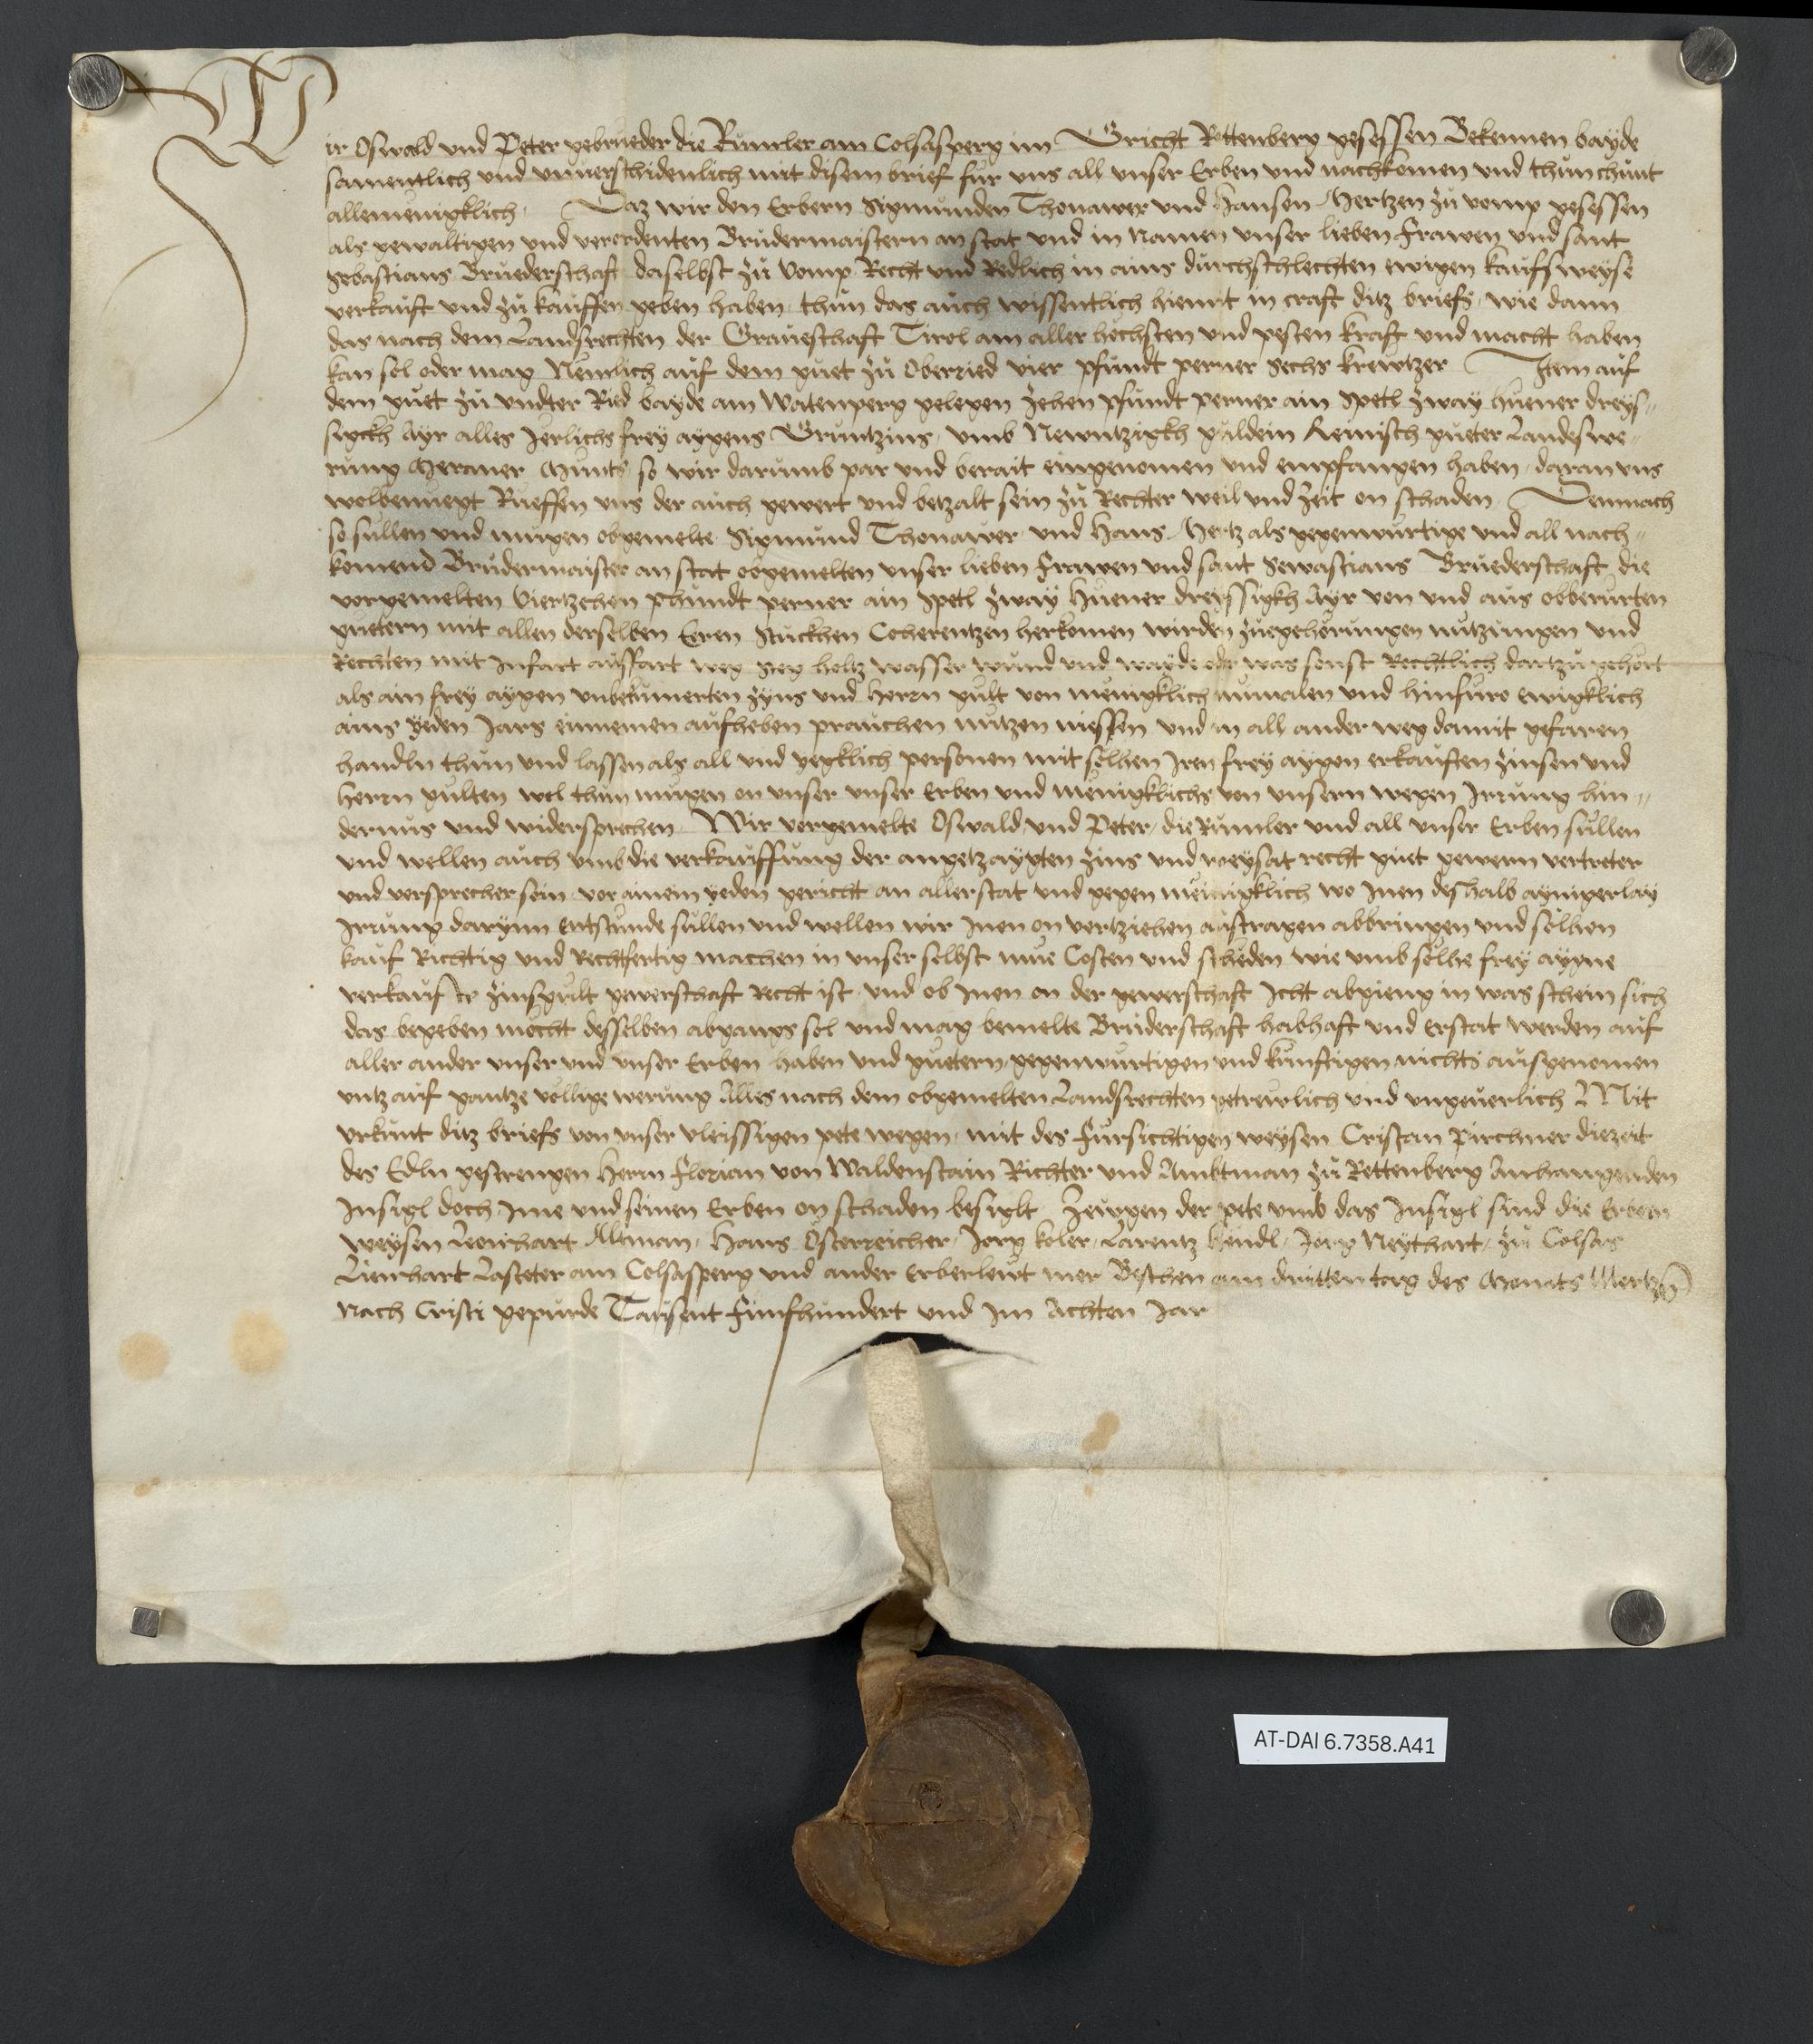 Wir Oswald und Peter gebrueder die Rumler am Colsasperg im Gricht Rettenberg gesessen Bekennen bayde
samentlich und unuerschidenlich mit disem brief für uns all unser Erben und nachkomen und thun chunt
allemenigklich. Daz wir den Erbern Sigmunden Thonawer und Hansen Hertzen zu vomp gesessen
als gewaltigen und verordenten Brudermaistern an stat und in namen unser lieben frawen und sant
Sebastians Bruederschaft daselbst zu vomp Recht und Redlich in ains durchschlechten ewigen kaufs weyse
verkauft und zu kauffen geben haben thun das auch wissentlich hiemit in craft ditz briefs wie dann
das nach dem Landsrechten der Graueschaft Tirol am aller höchsten und pesten kraft und macht haben
kan sol oder mag Nemlich auf dem guet zu Oberried vier pfundt perner sechs krewtzer Item auf
dem guet zu undter Ried bayde am Watenperg gelegen zehen pfundt perner ain spetl zway huener dreys„
sigckh Ayr alles Jerlichs frey aygens Gruntzins, umb Newntzigkh guldein Reinisch gueter Landeswe„
rung Meraner Munts so wir darumb par und berait eingenomen und empfangen haben daran uns
wolbenuegt Rueffen uns der auch gewert und betzalt sein zu Rechter weil und zeit on schaden Demnach
so sullen und mugen obgemelte Sigmund Thonawer und Hans Hertz als gegenwurtige und all nach„
komend Brudermaister an stat obgemelten unser lieben frawen und sant Sewastians Bruederschaft die
vorgemelten viertzehen phundt perner ain spetl zway Huener dreyssigkh Ayr von und aus obberurten
guetern mit allen derselben Eeren Stuckhen Coherentzen herkomen wirden zuegehörungen nutzungen und
Rechten mit Infart ausfart weg steg holtz wasser wund und wayde oder was sonst Rechtlich dartzu gehört
als ain frey aygen unbekumerten zyns und Herrn gult von menigklich numalen und hinfuro ewigklich
ains yeden Jars einnemen aufheben prauchen nutzen niessen und in all ander weg damit gefaren
handln thun und lassen als all und yegklich personen mit solhen Iren frey aygen erkauften zinsen und
Herrn gulten wol thun mugen on unser unser Erben und menigklichs von unsern wegen Irrung hin„
dernus und widersprechen. Wir vorgemelte Oswald und Peter die Rumler und all unser Erben sullen
und wellen auch umb die verkauffung der angetzaygten zins und weysat recht guet gewern vertreter
und versprecher sein vor ainem yeden gericht an aller stat und gegen menigklich wo Inen deshalb aynigerlay
Irrung darynn Entstunde sullen und wellen wir Inen on vertziehen austragen abbringen und solhen
kauf Richtig und Rechtfertig machen in unser selbst mue Costen und scheden wie umb solhe frey aygne
verkaufte zinsgult gewerschaft Recht ist und ob Inen on der gewerschaft Icht abgieng in was schein sich
das begeben möcht desselben abgangs sol und mag bemelte Bruderschaft habhaft und Erstat werden auf
aller ander unser und unser Erben haben und guetern gegenwurtigen und kunftigen nichts ausgenomen
untz auf gantze völlige werung Alles nach dem obgemelten Landsrechten getrewlich und ungeuerlich Mit
urkunt ditz briefs von unser vleissigen pete wegen mit des fursichtigen weysen Cristan Pirchner diezeit
des Edln gestrengen Herrn Florian von Waldenstain Richter und Ambtman zu Rettenberg Anhangenden
Insigl doch Ime und seinen Erben on schaden besiglt Zeugen der pete umb das Insigl sind die Erbern
weysen Leonhart Altman, Hans Österreicher, Jorg koler, Larentz Hendl, Jorg Neythart, zu Colsas
Lienhart Lasteter am Colsasperg und ander Erberleut mer Beschehen am dritten tag des Monats Mertzn
nach Cristi gepurde Tausent Funfhundert und Im Achten Jar
AT-DAI 6.7358.A41